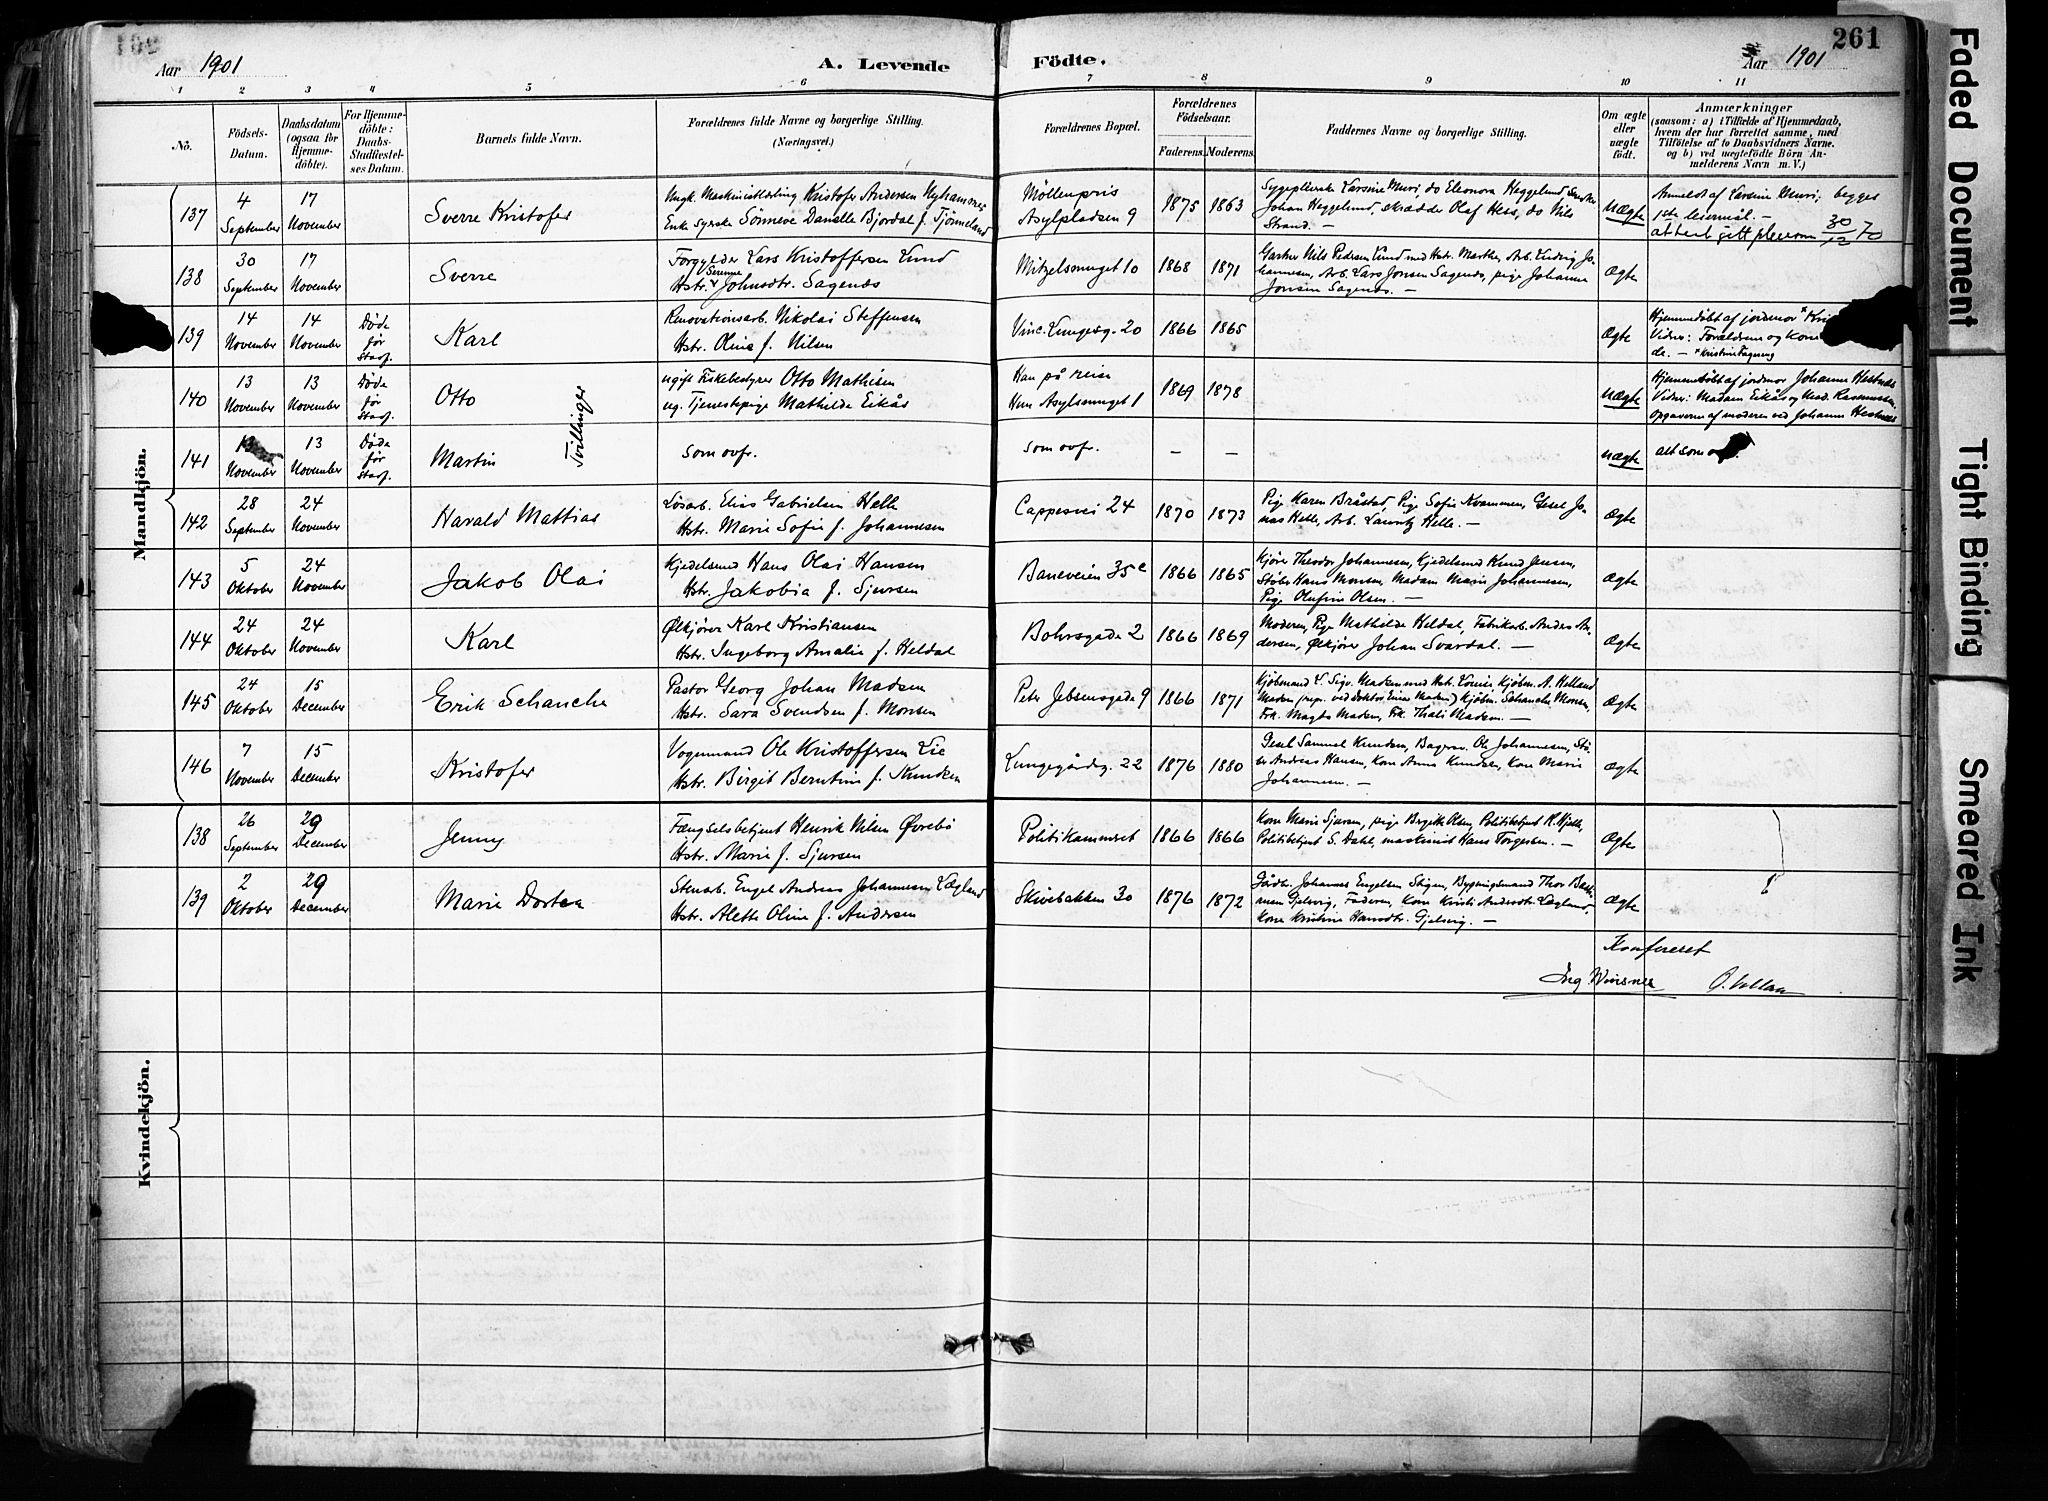 Aar 1901
A. Levende Födte.
Aar 1901
261
1 2 3 4 5 6 7 8 9 10 11
No.
Födsels-
Datum.
Daabsdatum
(ogsaa for
Hjemme-
döbte).
For Hjemme-
döbte:
Daabs-
Stadfæstel-
ses Datum.
Barnets fulde Navn.
Forældrenes fulde Navne og borgerlige Stilling.
(Næringsvei.)
Forældrenes Bopæl.
Forældrenes
Födselsaar.
Faderens. Moderens.
Faddernes Navne og borgerlige Stilling.
Om ægte
eller
uægte
født.
Anmærkninger
(saasom: a) i Tilfælde af Hjemmedaab,
hvem der har forrettet samme, med
Tilföielse af to Daabsvidners Navne.
og b) ved uægtefödte Börn An-
melderens Navn m. V.)
Mandkjön.
137
4
September
17
November
Sverre Kristofer
Ungk. Maskinistlærling Kristofer Andersen Nyhamnes
Enke syerske Sönneve Danelle Bjordal f. Tjönneland
Möllenpris
Asylpladsen 9
1875 1863
Sygeplierske Larsine Muri, do Eleonora Heggelund,
Johan Heggelund, skrædder Olaf Hess, do Nils
Strand. —
uægte
Anmeldt af Larsine Muri; begges
1ste leiermål. —
attest gitt pleiem 30/12 70
138
30
September
17
November
Sverre
Forgylder Lars Kristoffersen Lund
Hstr. Serenne Johnsdtr. Sagenæs
Mitzelsmuget 10
1868 1871
Gartner Nils Pedersen Lund med Hstr. Marthe, Arb. Ludvig Jo-
hannesen, Arb. Lars Jonsen Sagenæs, pige Johanne
Jonsen Sagenæs. —
Ægte
139
14
November
14
November
Døde
før
Stadf.
Karl
Renovationsarb. Nikolai Steffensen
Hstr. Oline f. Nilsen
Vinc. Lungesg. 20
1866 1865
Ægte
Hjemmedøbt af jordmor
Vidner: Forældrene og
de. — × Kristine Fagereng
140
13
November
13
November
Døde
før
Stadf.
Otto
Tvillinger
ugift Fiskebestyrer Otto Mathisen
ug. Tjenestepige Mathilde Eikås
Han på reise
Hun Asylsmuget 1
1869 1878
uægte
Hjemmedøbt af jordmor Johanne Hestnæs
Vidner: Madam Eikås og Mad. Rasmussen.
Opgaverne af moderen ved Johanne Hestnæs
141
13
November
13
November
Døde
før
Stadf.
Martin
som ovfr.
som ovfr.
— —
uægte
alt som
142
28
September
24
November
Harald Mattias
Løsarb. Elias Gabrielsen Helle
Hstr. Marie Sofie f. Johannesen
Cappesvei 24
1870 1873
Pige Karen Bråstad, Pige Sofie Kvammen, Gesel Jo-
nas Helle, Arb. Lauritz Helle. —
Ægte
143
5
Oktober
24
November
Jakob Olai
Kjedelsmed Hans Olai Hansen
Hstr. Jakobia f. Sjursen
Baneveien 35c
1866 1865
Kjører Theodor Johannesen, Kjedelsmed Knud Jensen,
Støber Hans Monsen, Madam Marie Johannesen,
Pige Olufine Olsen. —
Ægte
144
24
Oktober
24
November
Karl
Ølkjører Karl Kristiansen
Hstr. Ingeborg Amalie f. Heldal
Bohrsgade 2
1866 1869
Moderen, Pige Mathilde Heldal, Fabrikarb. Anders An-
dersen, Ølkjører Johan Svardal. —
Ægte
145
24
Oktober
15
December
Erik Schanche
Pastor Georg Johan Madsen
Hstr. Sara Svendsen f. Monsen
Peter Jebsensgade 9
1866 1871
Kjøbmand L. Sigv. Madsen med Hstr. Louise, Kjøbm. A. Helland
Madsen (repr. ved doktor Einar Madsen) Kjøbm. Schanche Monsen,
Frk. Magda Madsen, Frk. Thali Madsen. —
Ægte
146
7
November
15
December
Kristofer
Vognmand Ole Kristoffersen Lie
Hstr. Birgit Berntine f. Knudsen
Lungegårdsg. 22
1876 1880
Gesel Samuel Knudsen, Bagersv. Ole Johannesen, Stø-
ber Andreas Hansen, Kone Anna Knudsen, Kone Marie
Johannesen. —
Ægte
Kvindekjön.
138
26
September
29
December
Jenny
Fængselsbetjent Henrik Nilsen Øvrebö
Hstr. Marie f. Sjursen
Politikammeret
1866 1866
Kone Marie Sjursen, pige Birgitte Olsen, Politibetjent K. Hjelle,
Politibetjent S. Dahl, maskinist Hans Torgersen. —
Ægte
139
2
Oktober
29
December
Marie Dortea
Stenarb. Engel Andreas Johannesen Lægland
Hstr. Alette Oline f. Andersen
Skivebakken 30
1876 1872
Gårdbr. Johannes Engelsen Stigen, Bygningsmand Thor
Gjelsvig, Faderen, Kone Kristi Andersdtr. Lægland,
Kone Kristine Hansdtr. Gjelsvig. —
Ægte
Konfereret
Ing. Winsnes
O. Vollan
Faded Document
Tight Binding
Smeared Ink